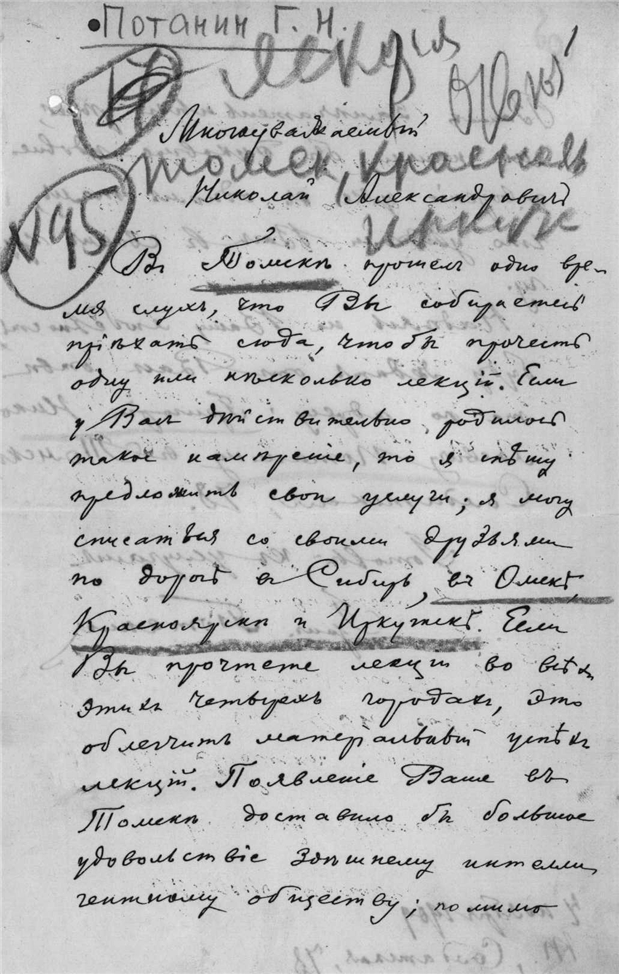 Потанин Г. Н.
1
17 лекция
Многоуважаемый
Томск, Красноя
Николай Александровичъ
№95
Иркутск
Въ Томскѣ прошелъ одно вре-
мя слухъ, что Вы собираетесь
пріѣхать сюда, чтобы прочесть
одну или нѣсколько лекцій. Если
у Васъ дѣйствительно родилось
такое намѣреніе, то я спѣшу
предложить свои услуги; я могу
списаться со своими друзьями
по дорогѣ въ Сибирь, въ Омскѣ,
Красноярскѣ и Иркутскѣ. Если
Вы прочтете лекціи во всѣхъ
этихъ четырехъ городахъ, это
облегчитъ матеріальный успѣхъ
лекцій. Появленіе Ваше въ
Томскѣ доставило бы большое
удовольствіе здѣшнему интелли-
гентному обществу; помимо